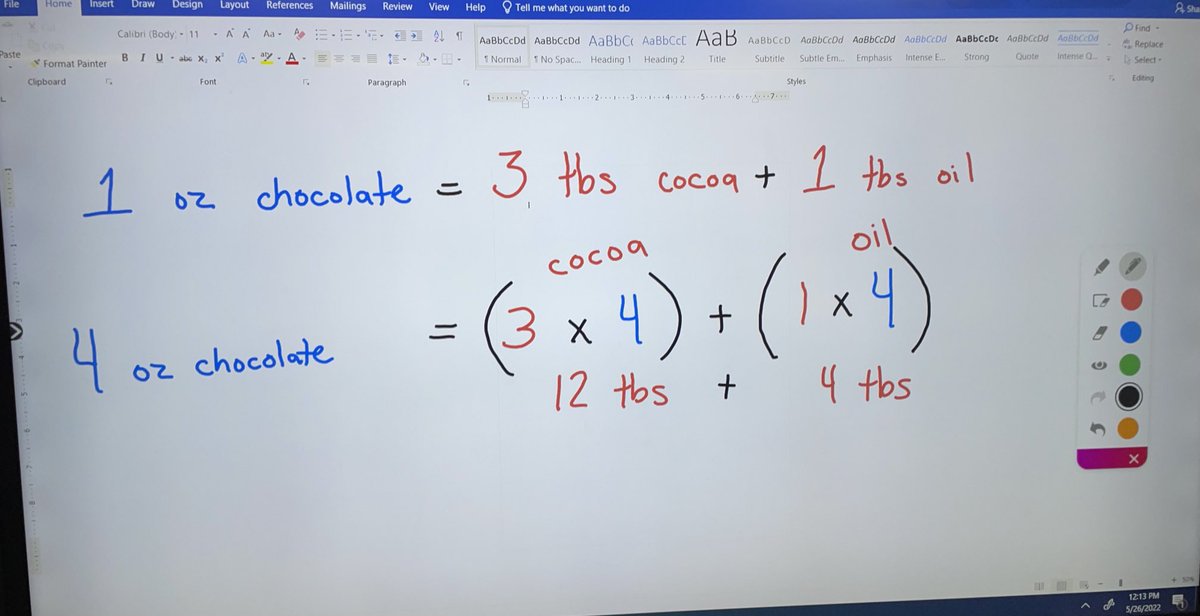 File Home Insert Draw Design Layout References Mailings Review View Help Tell me what you want to do Sha
Cut
Copy
Paste Format Painter
Clipboard
Calibri (Body) 11 A A Aa
B I U abc X₂ X² A aby A
Font
Paragraph
AaBbCcDd AaBbCcDd AaBbC AaBbCcC AaB AaBbCcD AaBbCcDd AaBbCcDd AaBbCcDd AaBbCcDc AaBbCcDd AaBbCcDd
¶ Normal ¶ No Spac... Heading 1 Heading 2 Title Subtitle Subtle Em... Emphasis Intense E... Strong Quote Intense Q...
Styles
Find
Replace
Select
Editing
1 1 2 3 4 5 6 7
1 oz chocolate = 3 tbs cocoa + 1 tbs oil
cocoa oil
4 oz chocolate = (3 x 4) + (1 x 4)
12 tbs + 4 tbs
50%
12:13 PM
5/26/2022